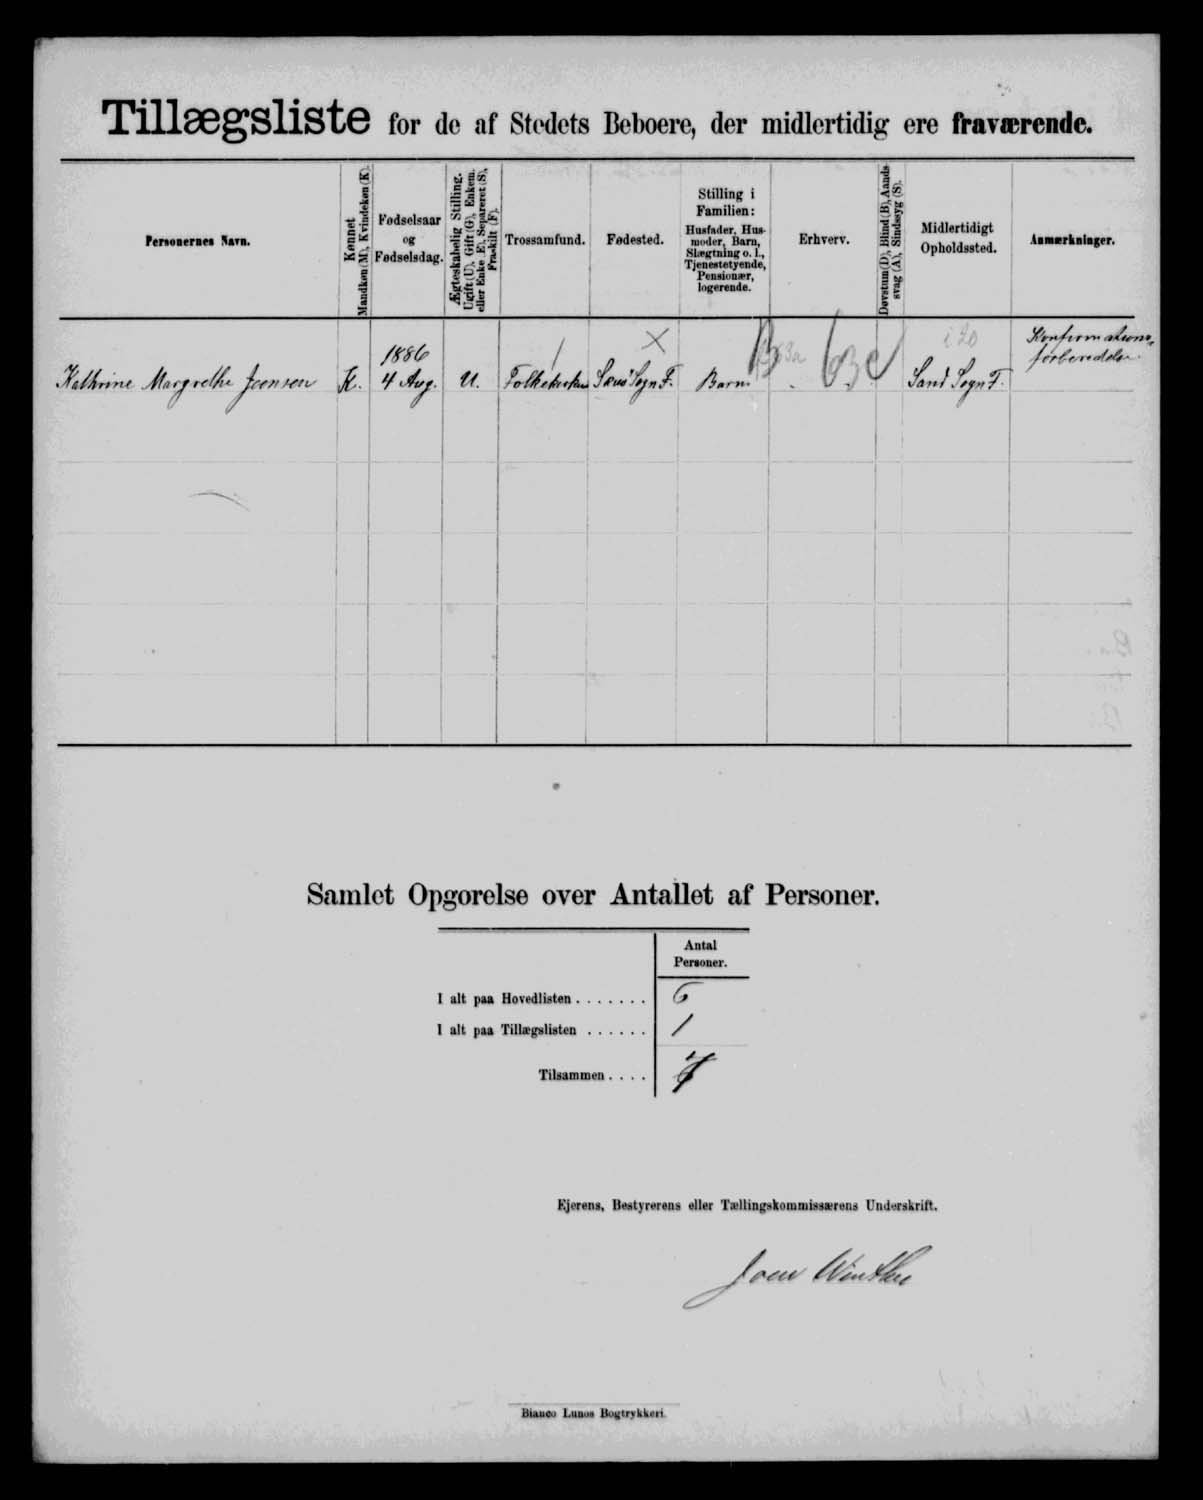 Tillægsliste for de af Stedets Beboere, der midlertidig ere fraværende.
Personernes Navn.
Kønnet
Mandkøn (M), Kvindekøn (K).
Fødselsaar
og
Fødselsdag.
Ægteskabelig Stilling.
Ugift (U), Gift (G), Enkem.
eller Enke (E), Separeret (S),
Fraskilt (F).
Trossamfund.
Fødested.
Stilling i
Familien:
Husfader, Hus-
moder, Barn,
Slægtning o. l.,
Tjenestetyende,
Pensionær,
logerende.
Erhverv.
Døvstum (D), Blind (B), Aands-
svag (A), Sindssyg (S).
Midlertidigt
Opholdssted.
Anmærkninger.
Kathrine Margrethe Joensen
K.
1886
4 Aug.
U.
Folkekirken
Sogn F.
Barn
Sand Sogn F.
Konfirmations-
forberedelse.
Samlet Opgørelse over Antallet af Personer.
Antal
Personer.
I alt paa Hovedlisten . . . . . . . 6
I alt paa Tillægslisten . . . . . . 1
Tilsammen . . . . 7
Ejerens, Bestyrerens eller Tællingskommissærens Underskrift.
Joen Winther
Bianco Lunos Bogtrykkeri.